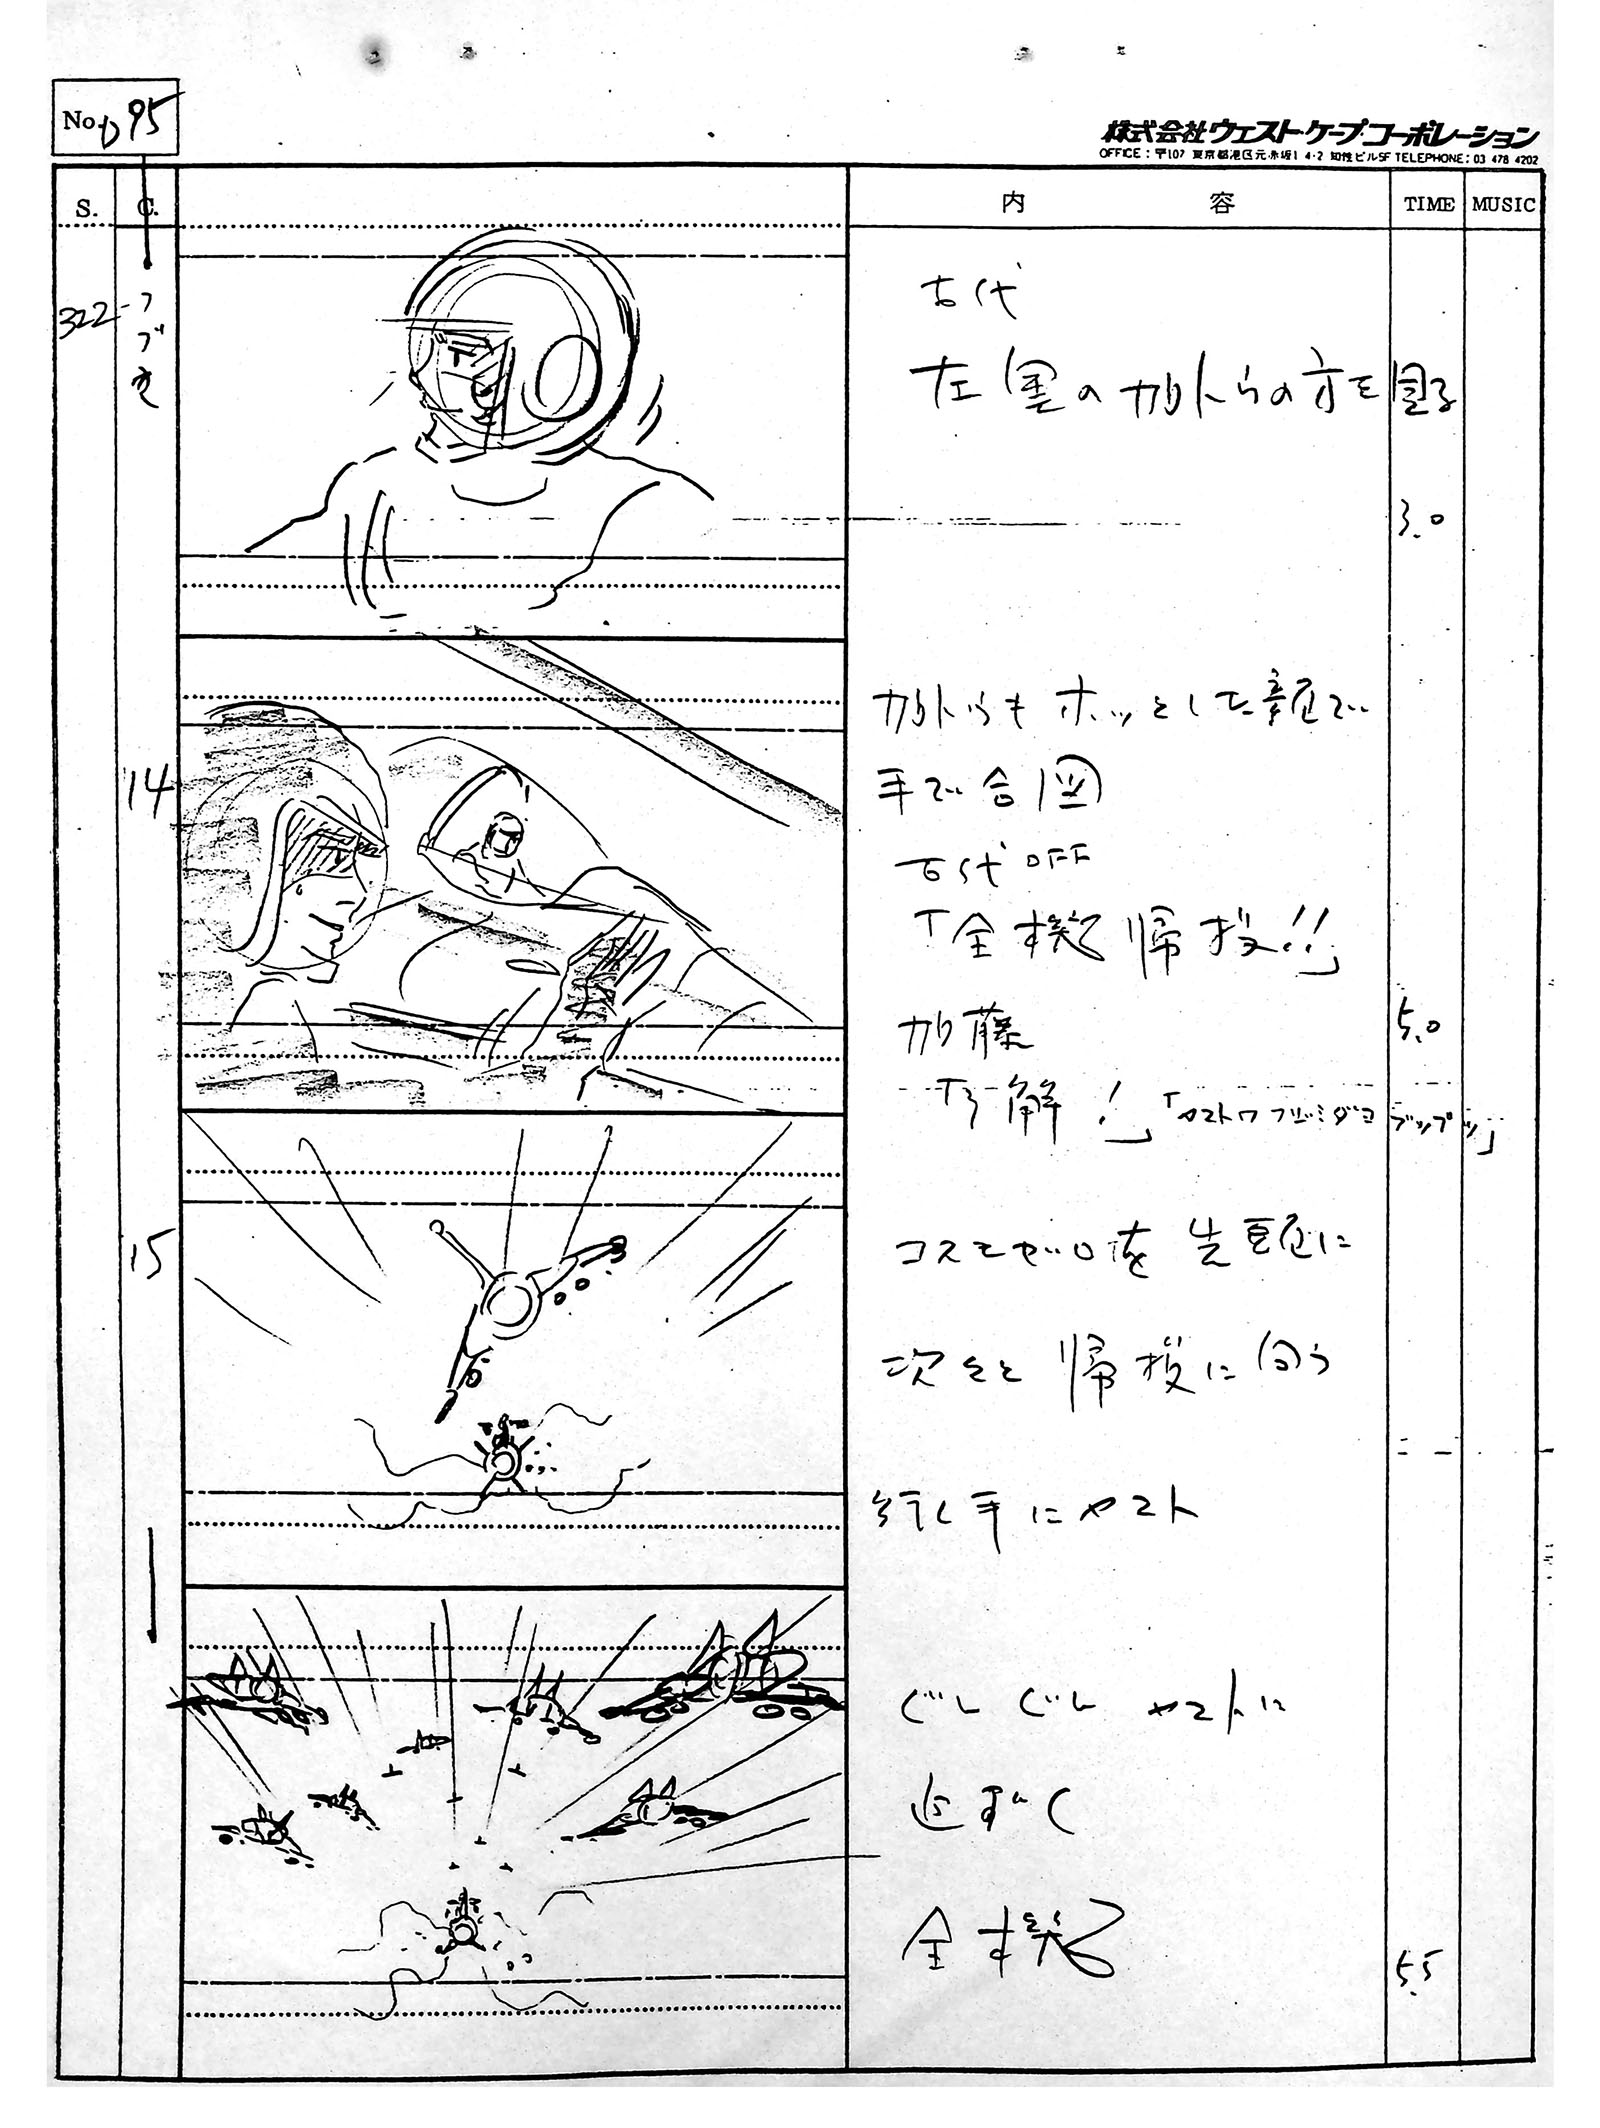 No. D95
株式会社ウェスト・ケープ・コーポレーション
OFFICE:〒107 東京都港区元赤坂1 4-2 知性ビル5F TELEPHONE:03 478 4202
S. C. 内容 TIME MUSIC
322
つづき
古代
左翼の加トらの方を見る
3.0
14
加トらもホッとした顔で
手で合図
古代OFF
「全機帰投!!」
加藤
5.0
「了解!」
15
コスモゼロを先頭に
次々と帰投に向う
行く手にヤマト
ぐんぐんヤマトに
近ずく
全機
5.5